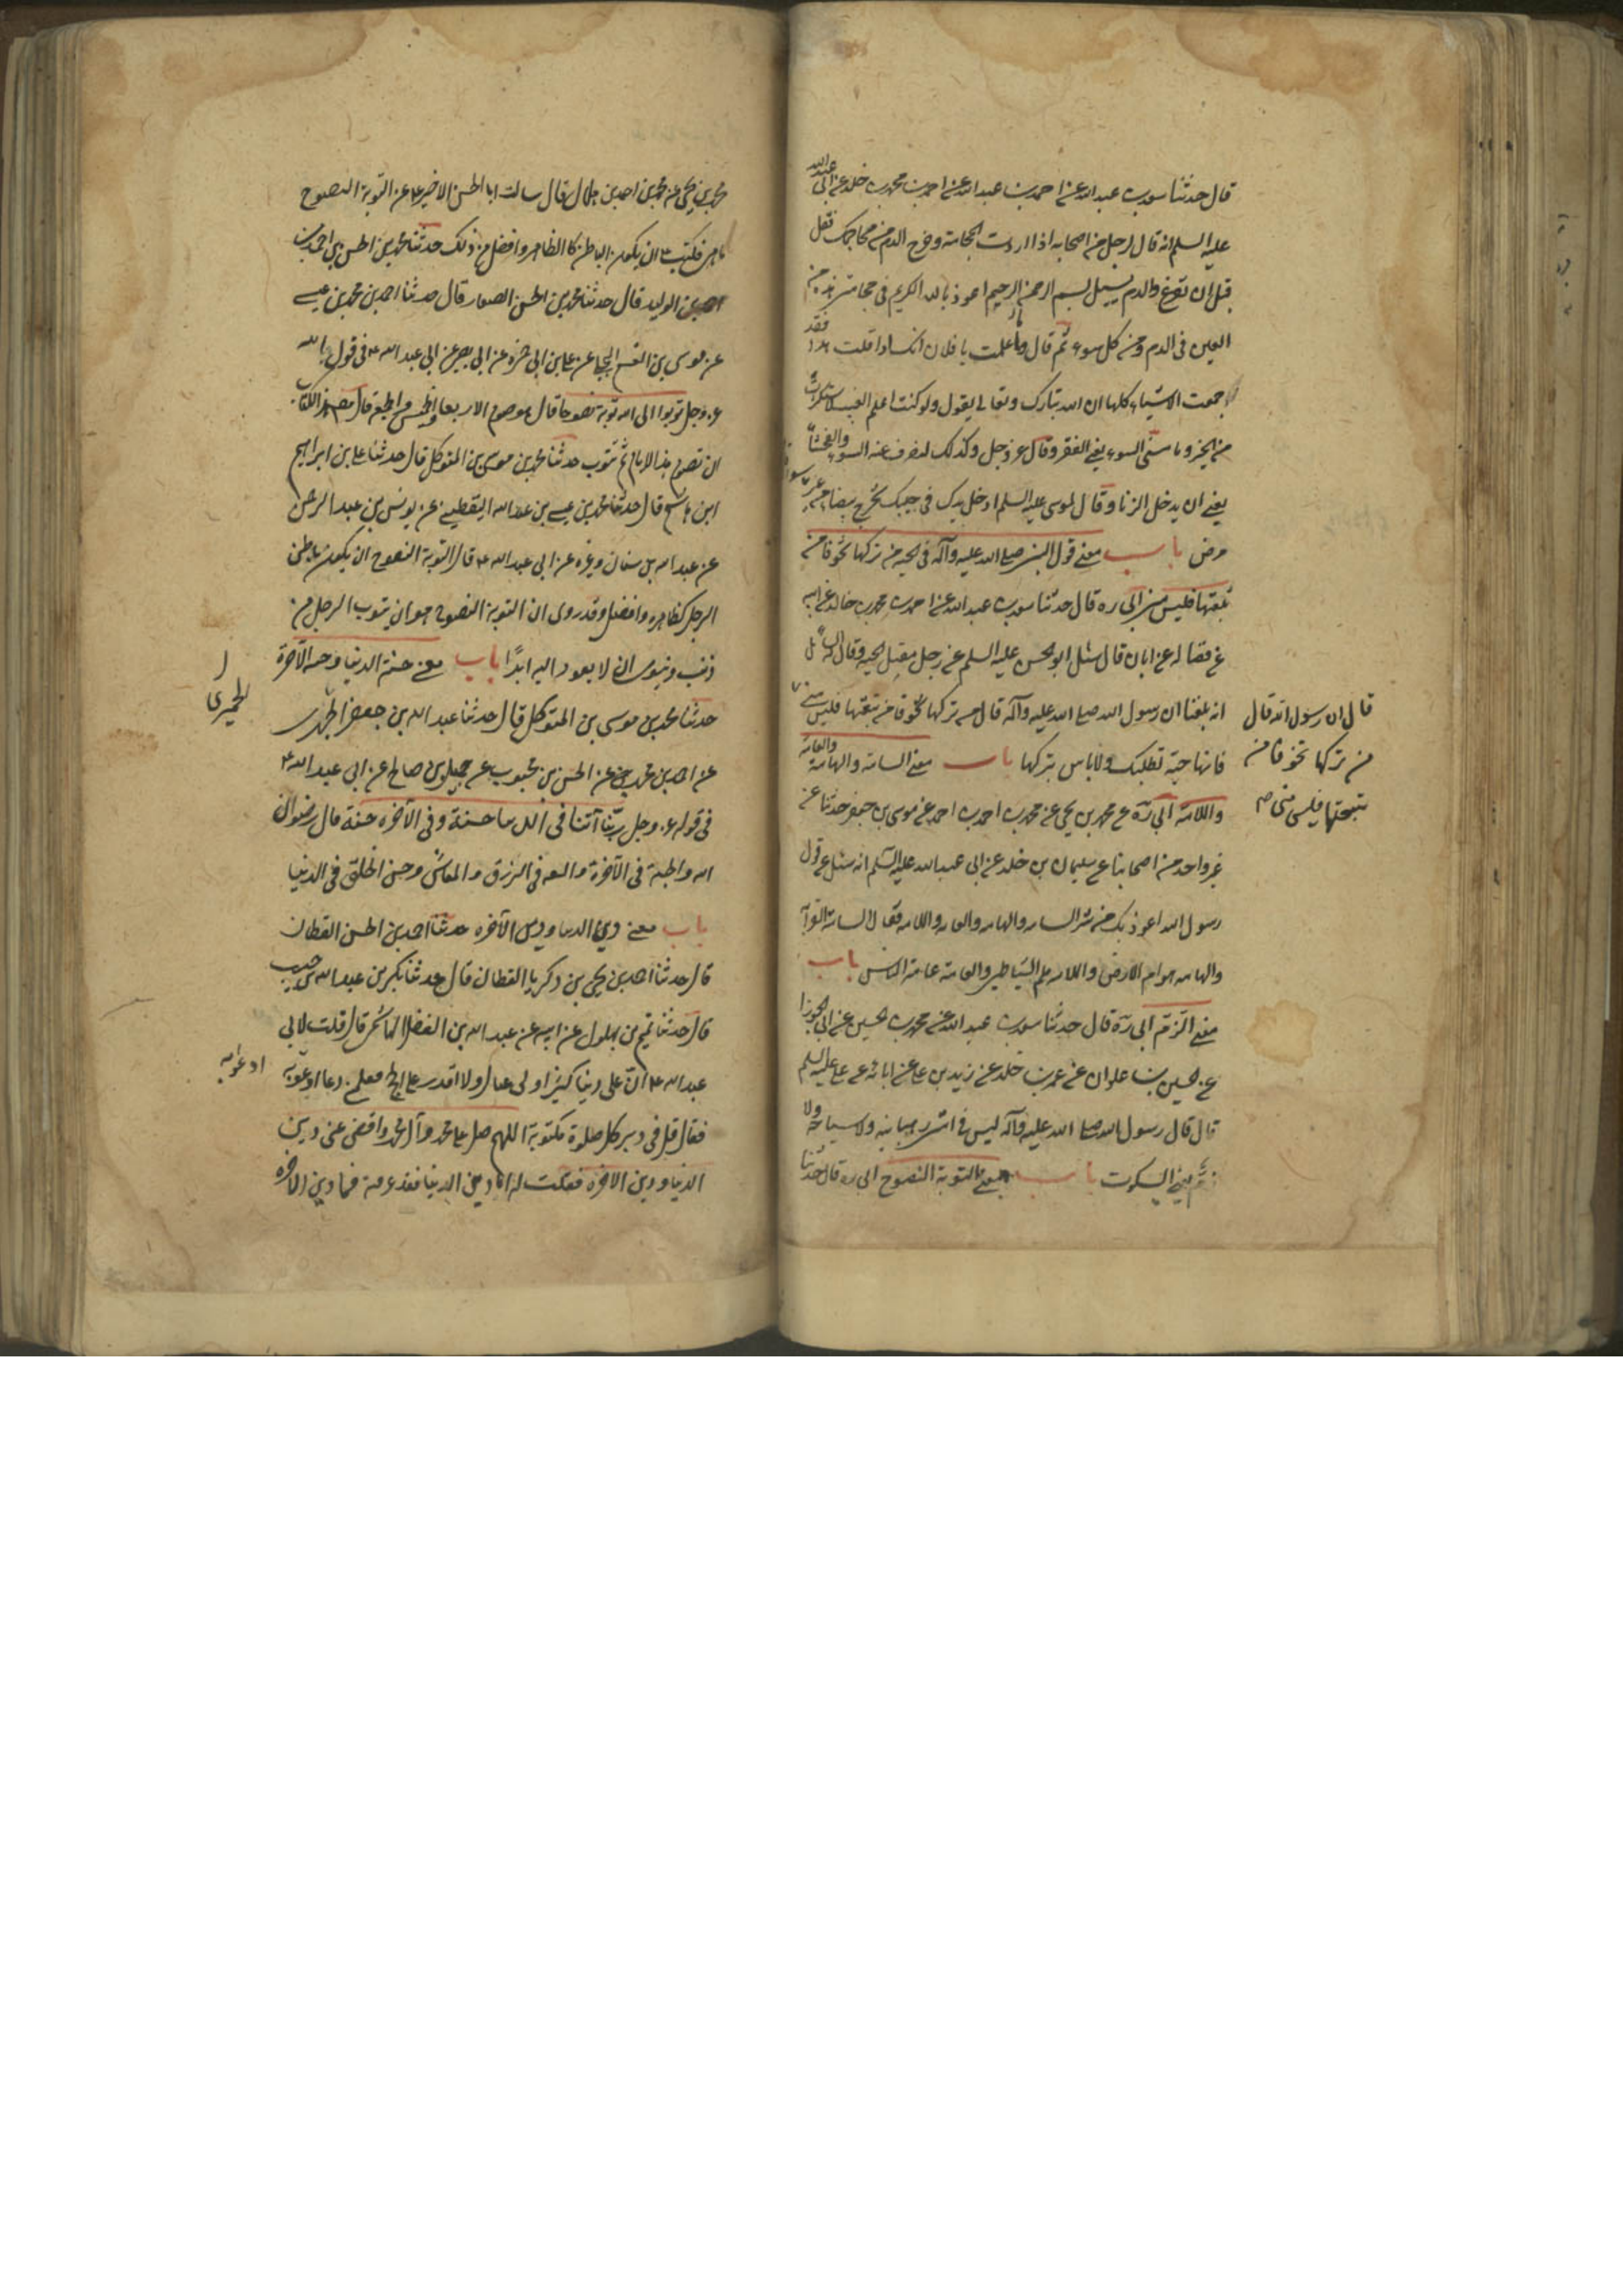 قال حدثنا سعد بن عبد الله عن احمد بن عبد الله عن احمد بن محمد بن خلد عن ابى عبد الله
عليه السلم انه قال لرجل من اصحابه اذا اردت الحجامة وخرج الدم من محاجمك فقل
قبل ان تفرغ والدم يسيل بسم الله الرحمن الرحيم اعوذ بالله الكريم فى حجامتى هذه من
العين فى الدم ومن كل سوء ثم قال وما علمت يا فلان انك اذا قلت هذا فقد
جمعت الاشياء كلها ان الله تبارك وتعالى يقول ولو كنت اعلم الغيب لاستكثرت
من الخير وما مسنى السوء يعنى الفقر وقال عز وجل وكذلك لنصرف عنه السوء والفحشاء
يعنى ان يدخل الزنا وقال لموسى عليه السلم ادخل يدك فى جيبك تخرج بيضاء من غير سوء
مرض باب معنى قول النبى صلى الله عليه وآله فى الحية من تركها تخوفا من
تبعتها فليس منى ابى ره قال حدثنا سعد بن عبد الله عن احمد بن محمد بن خالد عن ابيه
عن فضاله عن ابان قال سئل ابو الحسن عليه السلم عن رجل يقتل الحية وقال له السائل
انه بلغنا ان رسول الله صلى الله عليه وآله قال من تركها تخوفا من تبعتها فليس منى
قال ان رسول الله قال
من تركها تخوفا من
تبعتها فليس منى
فانها حية تطلبك ولا باس بتركها باب معنى السامة والهامة والعامة
واللامة ابى ره عن محمد بن يحيى عن محمد بن احمد بن احمد عن موسى بن جعفر حدثنا عن
غير واحد من اصحابنا عن سليمان بن خلد عن ابى عبد الله عليه السلم انه سئل عن قول
رسول الله اعوذ بك من شر السامه والهامه والعامه واللامه فقال السامة القرابة
والهامه هوام الارض واللامه لمم الشياطين والعامة عامة الناس باب
معنى الزم ابى ره قال حدثنا سعد بن عبد الله عن محمد بن الحسين عن ابى الجوزا
عن الحسين بن علوان عن عمرو بن خلد عن زيد بن على عن ابائه عن على عليه السلم
قال قال رسول الله صلى الله عليه وآله ليس فى امتى رهبانيه ولا سياحة ولا
زم يعنى السكوت باب معنى التوبة النصوح ابى ره قال حدثنا
محمد بن يحيى عن محمد بن احمد بن هلال قال سالت ابا الحسن الاخير ع عن التوبة النصوح
ما هى فكتب ع ان يكون الباطن كالظاهر وافضل من ذلك حدثنا محمد بن الحسن بن احمد بن
الوليد قال حدثنا محمد بن الحسن الصفار قال حدثنا احمد بن محمد بن عيسى
عن موسى بن القسم البجلى عن على بن ابى حمزه عن ابى بصير عن ابى عبد الله ع فى قول الله
عز وجل توبوا الى الله توبة نصوحا قال هو صوم الاربعا والخميس والجمعة قال مصنف الكتاب
ان تصوم هذه الايام ثم تتوب حدثنا محمد بن موسى بن المتوكل قال حدثنا على بن ابراهيم
ابن هاشم قال حدثنا محمد بن عيسى بن عبد الله اليقطينى عن يونس بن عبد الرحمن
عن عبد الله بن سنان وغيره عن ابى عبد الله ع قال التوبة النصوح ان يكون باطن
الرجل كظاهره وافضل وقد روى ان التوبة النصوح هو ان يتوب الرجل من
ذنب وينوى ان لا يعود اليه ابدًا باب معنى حسنة الدنيا وحسنة الآخرة
حدثنا محمد بن موسى بن المتوكل قال حدثنا عبد الله بن جعفر الحميرى
الحميرى
عن احمد بن محمد بن عيسى عن الحسن بن محبوب عن جميل بن صالح عن ابى عبد الله ع
فى قوله عز وجل ربنا آتنا فى الدنيا حسنة وفى الآخرة حسنة قال رضوان
الله والجنة فى الآخرة والسعه فى الرزق والمعاش وحسن الخلق فى الدنيا
باب معنى دين الدنيا ودين الآخره حدثنا احمد بن الحسن القطان
قال حدثنا احمد بن يحيى بن زكريا القطان قال حدثنا بكر بن عبد الله بن حبيب
قال حدثنا تميم بن بهلول عن ابيه عن عبد الله بن الفضل الهاشمى قال قلت لابى
عبد الله ع ان على دينا كثيرا ولى عيال ولا اقدر على الحج فعلمنى دعا ادعو به
ادعو به
فقال قل فى دبر كل صلوة مكتوبة اللهم صل على محمد وآل محمد واقض عنى دين
الدنيا ودين الاخره فقلت له اما دين الدنيا فقد عرفته فما دين الاخره